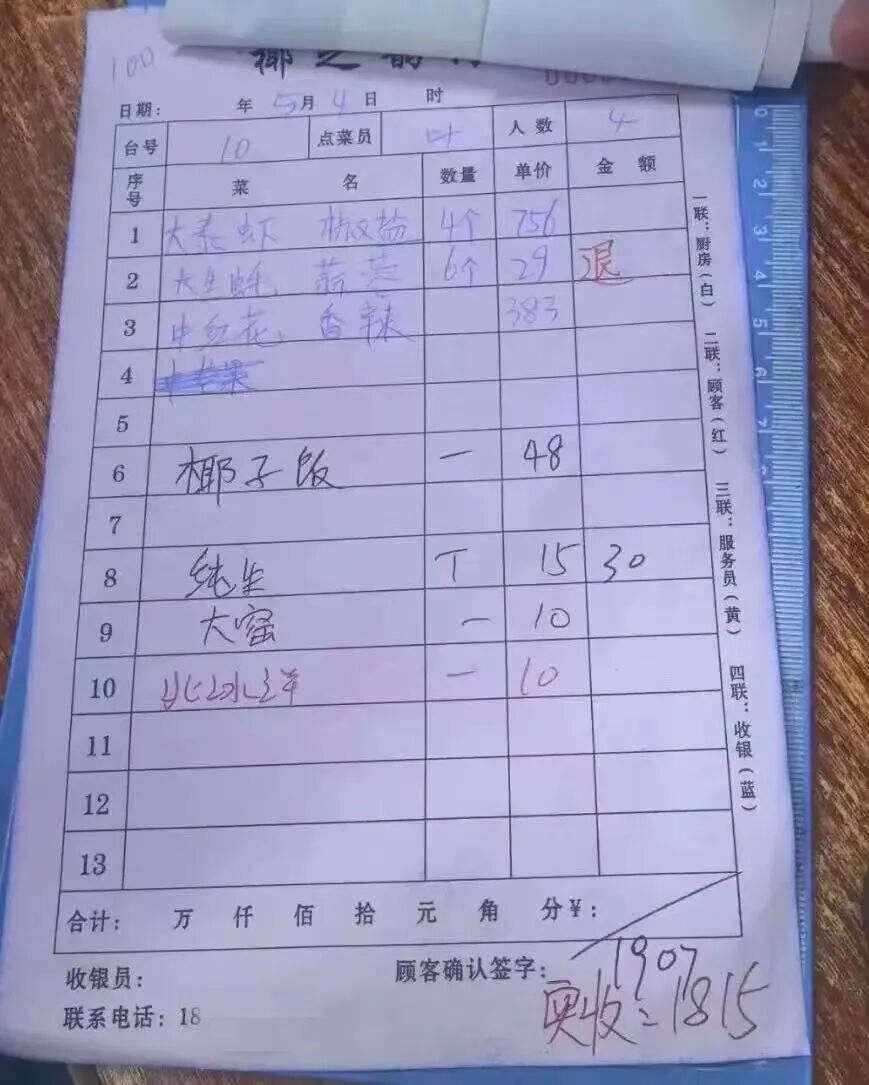 100
椰之韵
日期： 年 5月 4日 时
台号 10 点菜员 叶 人数 4
序号 菜 名 数量 单价 金 额
1 大泰虾 椒盐 4个 756
2 大生蚝 蒜蓉 6个 29 退
3 中红花 香辣 383
4
5
6 椰子饭 一 48
7
8 纯生 T 15 30
9 大窑 一 10
10 北冰洋 一 10
11
12
13
合计： 万 仟 佰 拾 元 角 分¥：
收银员： 顾客确认签字： 1907
联系电话：18 实收：1815
一联：厨房（白） 二联：顾客（红） 三联：服务员（黄） 四联：收银（蓝）
0 1 2 3 4 5 6 7